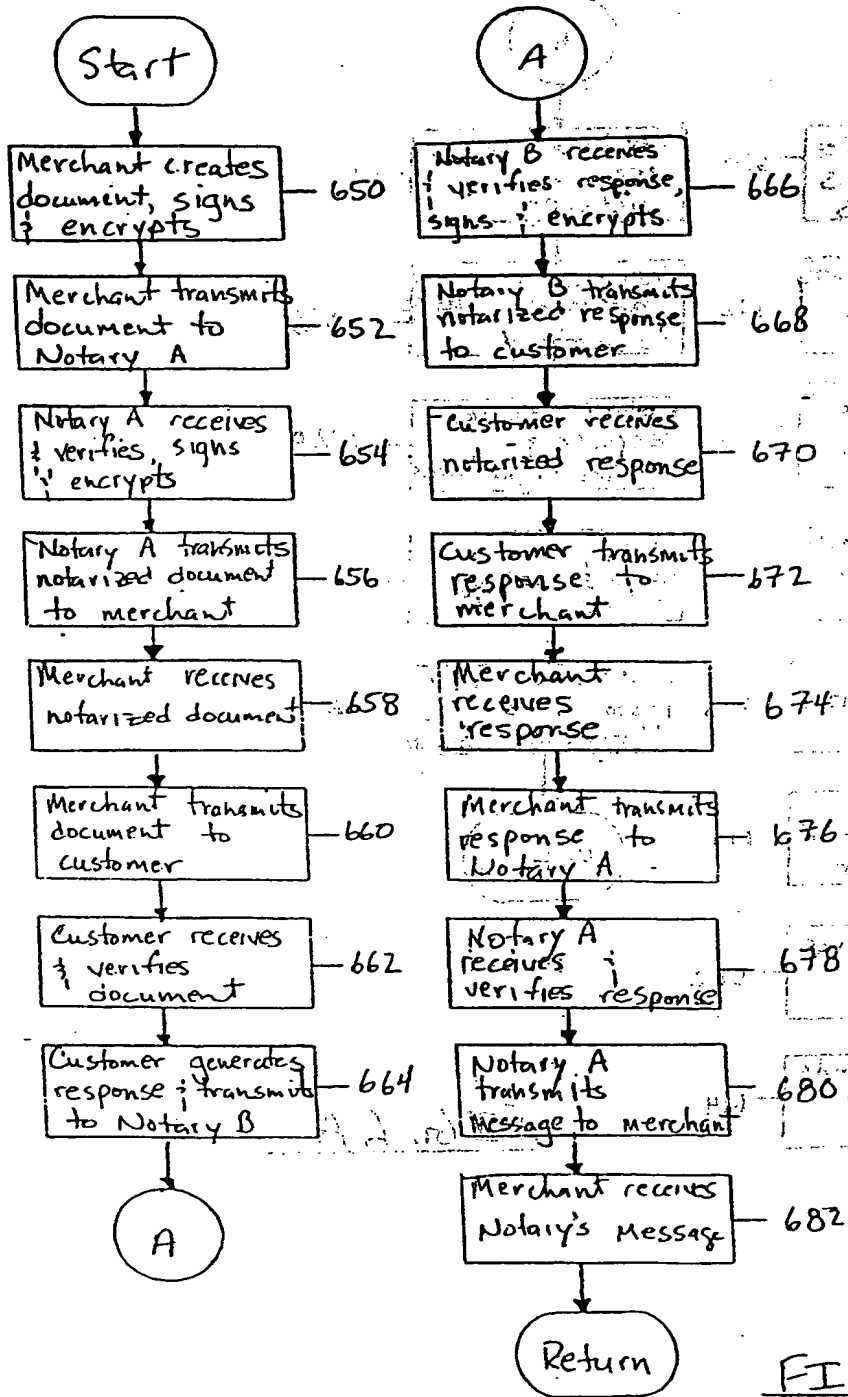 Start
Merchant creates
document, signs
& encrypts
650
Merchant transmits
document to
Notary A
652
Notary A receives
& verifies, signs
& encrypts
654
Notary A transmits
notarized document
to merchant
656
Merchant receives
notarized document
658
Merchant transmits
document to
customer
660
Customer receives
& verifies
document
662
Customer generates
response & transmits
to Notary B
664
A
A
Notary B receives
& verifies response,
signs & encrypts
666
Notary B transmits
notarized response
to customer
668
Customer receives
notarized response
670
Customer transmits
response to
merchant
672
Merchant
receives
response
674
Merchant transmits
response to
Notary A
676
Notary A
receives &
verifies response
678
Notary A
transmits
message to merchant
680
Merchant receives
Notary's Message
682
Return
FI